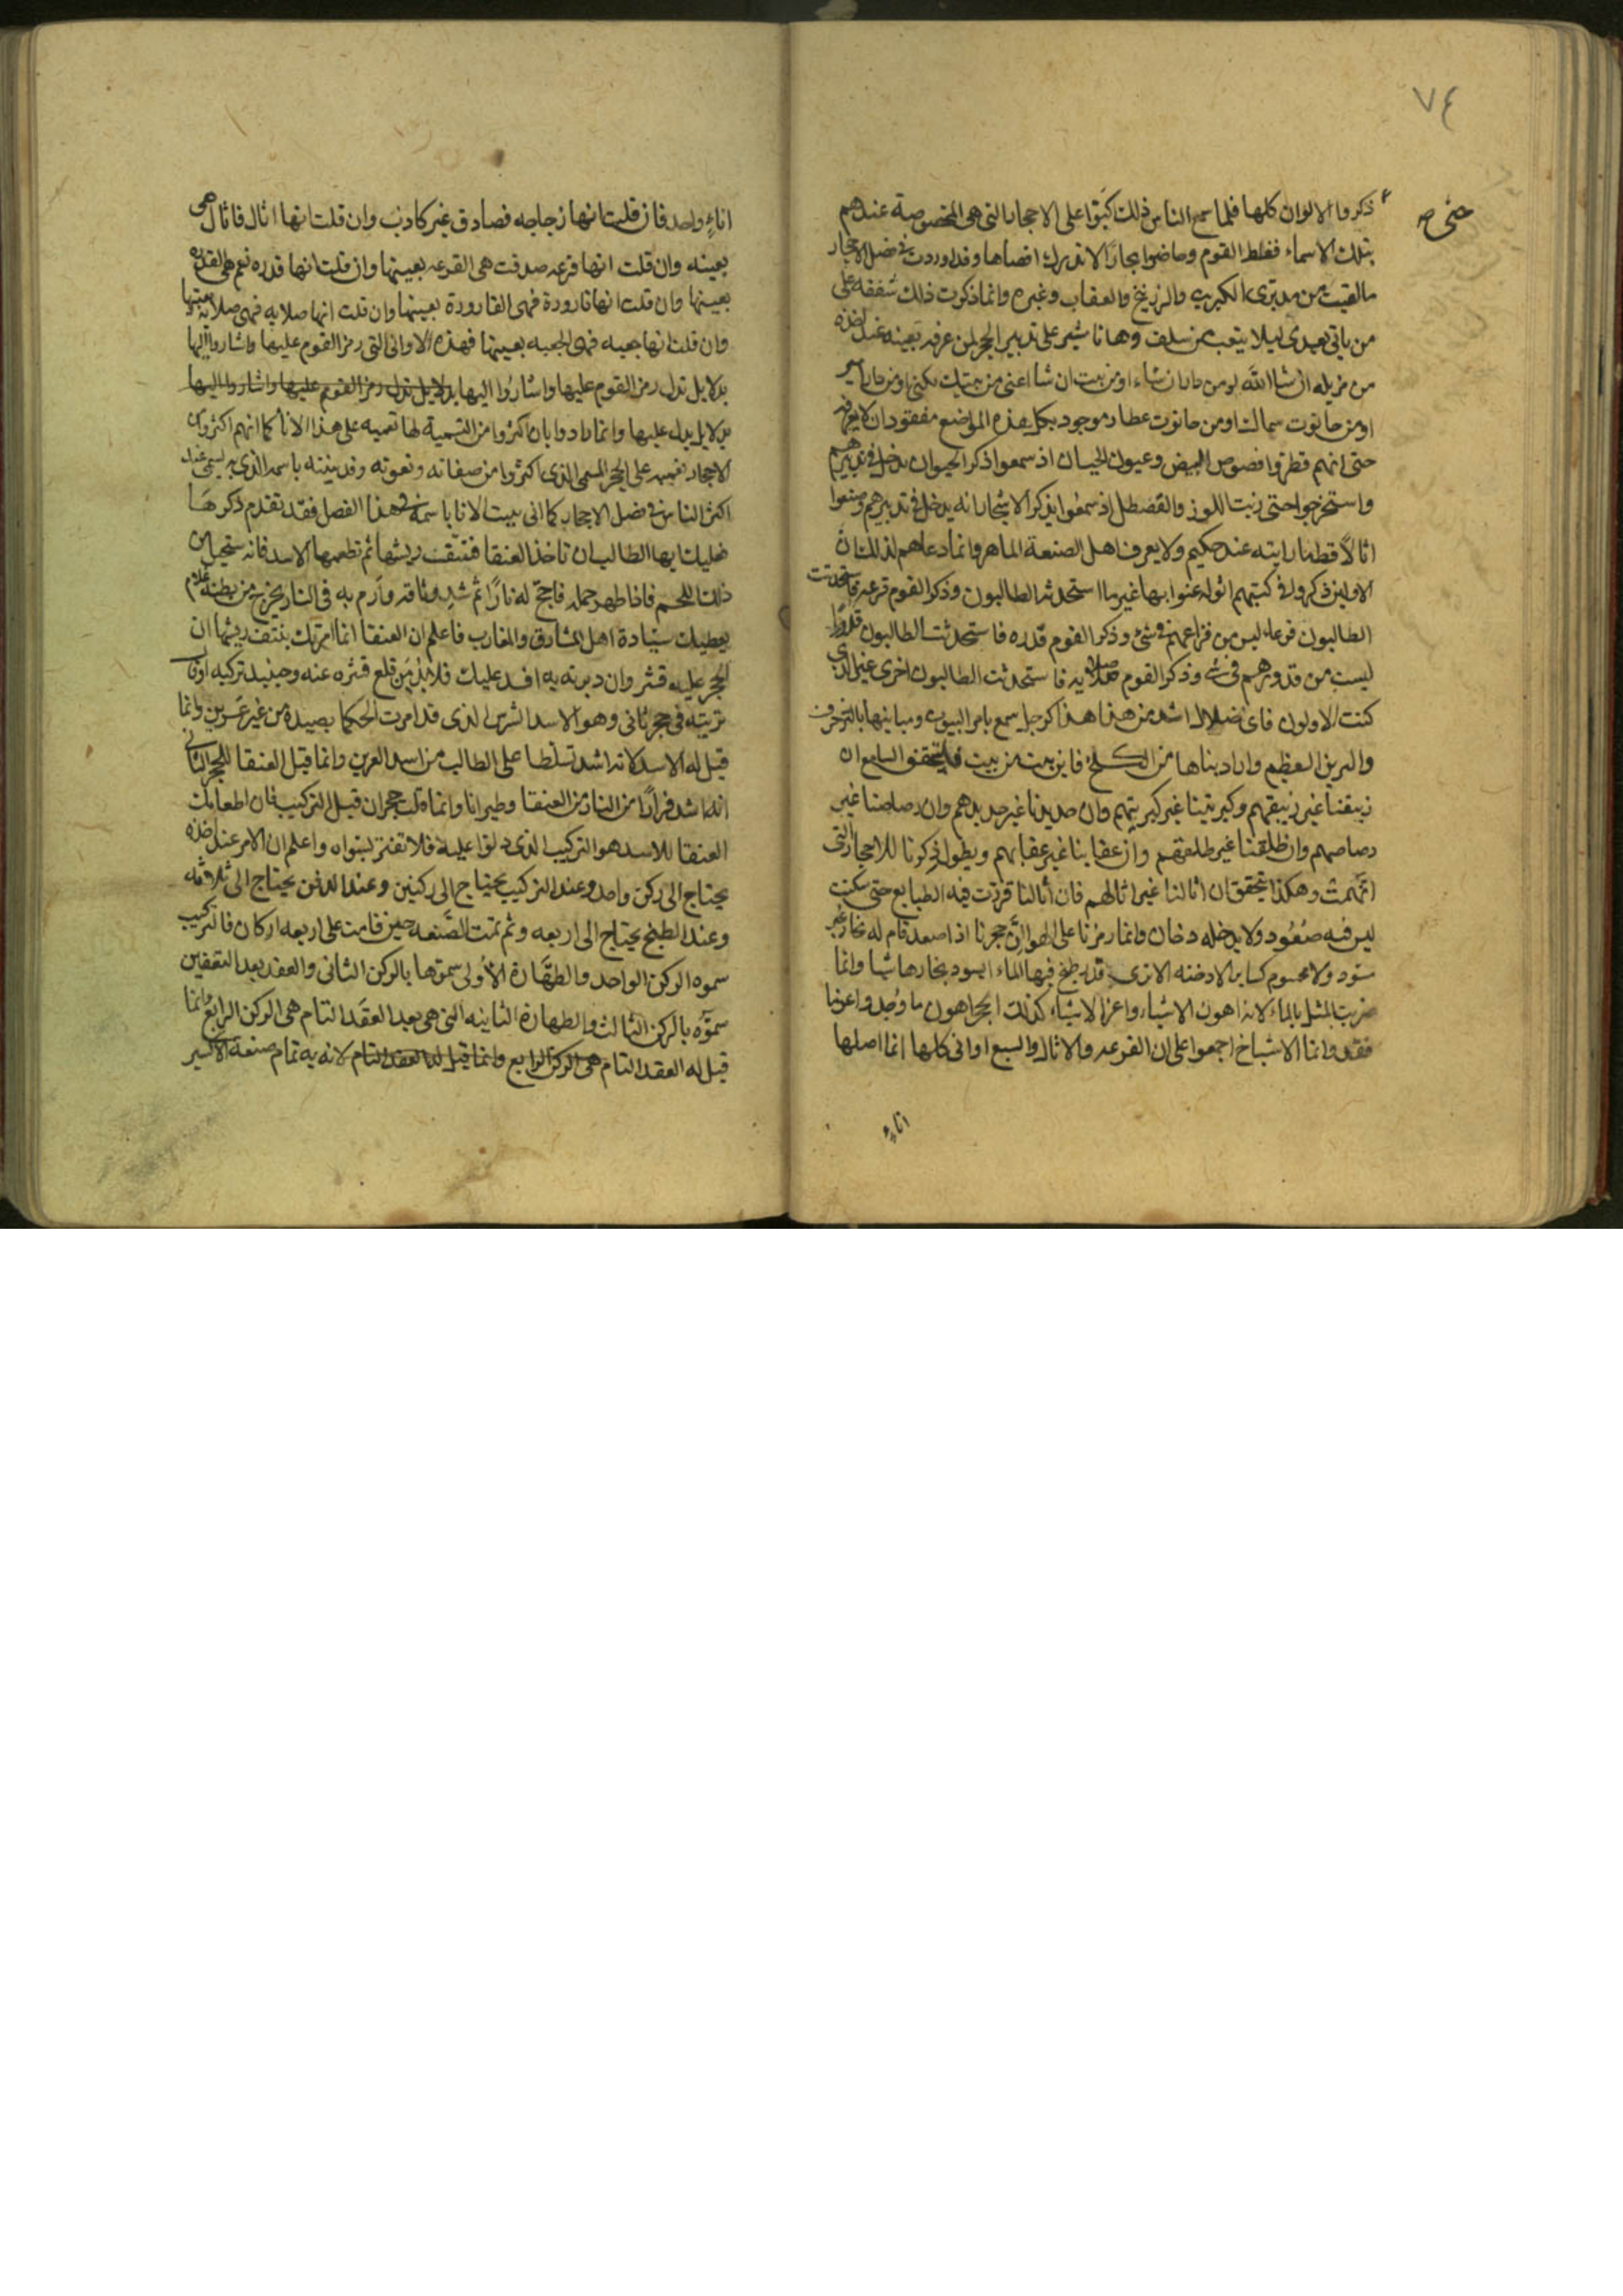 ٧٤
ذكروا الالوان كلها فلما سمع الناس ذلك كبّوا على الاحجار التى هى المخصوصة عندهم
بتلك الاسماء فغلط القوم وخاضوا بحارًا لا تدرك اقصاها وقد اوردت فى فصل الاحجار
مالقيت من مدبّرى الكبريت والزرنيخ والعقاب وغيره وانما ذكرت ذلك شفقه على
من ياتى بعدى ليلا يتعب من سلف وها نا شير على تدبير الحجر لمن عرفه بعينه عند اخذه
من مزبله ان شا الله او من خان شاء او من بيت ان شا اعنى من بيتك
او من حانوت سماك او من حانوت عطار موجود بكل هذه المواضع مفقود ان لا يعرفه
حتى انهم قطروا فصوص البيض وعيون الحيات اذ سمعوا ذكر الحيوان يدخل فى تدبيرهم
واستخرجوا حتى زيت اللوز والقضطل اذ سمعوا بذكر الاشجار انه يدخل فى تدبيرهم وصنعوا
اثالًا قط ما رايته عند حكيم ولا يعرف اهل الصنعة الماهر وانما دعاهم لذلك ان
الاولين ذكروا فى كتبهم اثوله عنوا بها غير ما استحدثه الطالبون وذكر القوم قرعه فاستحدثت
الطالبون قرعا ليس من قراعهم فى شئ وذكر القوم قدره فاستحدثت الطالبون قدورًا
ليست من قدورهم فى شئ وذكر القوم صلايه فاستحدثت الطالبون اخرى غير الذى
كنت الاولون فاى ضلال اشد من هذا هذا كرجل سمع بامر البيوت ومبانيها بالزخرف
والتزين العظيم واراد بناها من الكلخ فاين بيت من بيت فليتحقق السامع ان
زيبقنا غير زيبقهم وكبريتنا غير كبريتهم وان حديدنا غير حديدهم وان رصاصنا غير
رصاصهم وان طلقنا غير طلقهم وان عقابنا غير عقابهم ويطول ذكرنا للاحجار التى
اتهمت وهكذا يتحقق ان اثالنا غير اثالهم فان اثالنا قرنت فيه الطبايع حتى سكنت
ليس فيه صُعُود ولا يدخله دخان وانما رمزنا على الهوا لان حجرنا اذا اصعد قام له بخار غير
سود ولا محموم كساير الادخنه الا ترى قدر طبخ فيها الماء ايسود بخارها شيا وانما
ضربت المثل بالماء لانه اهون الاشياء واعز الاشياء كذلك الحجر اهون ما وُجد واعز ما
فقد وانما الاشياخ اجمعوا على ان القرعه والاثال والسبع اوانى كلها انما اصلها
اناءٍ
اناءٍ واحد فان قلت انها زجاجه فصادق غير كاذب وان قلت انها اثال فاثال هى
بعينه وان قلت انها قرعه صدقت هى القرعه بعينها وان قلت انها قدره نعم هى القدره
بعينها وان قلت انها قارورة فهى القارورة بعينها وان قلت انها صلايه فهى صلايه بعينها
وان قلت انها جعبه فهى الجعبه بعينها فهذه الاوانى التى رمز القوم عليها واشاروا اليها
بدلايل تدل رمز القوم عليها واشاروا اليها بدلايل تدل رمز القوم عليها واشاروا اليها
بدلايل يدل عليها وانما رادوا بان اكثروا من التسمية لها تعميه على هذا الانا كما انهم اكثروا من
الاحجار تعميه على الحجر المسمى الذى اكثروا من صفاته ونعوته وقد بينته باسمه الذى به يسمى عند
اكثر الناس فى فصل الاحجار كما انى بينت الانا باسمه فى هذا الفصل فقد تقدم ذكرها
فعليك ايها الطالب ان تاخذ العنقا فتنتف ريشها ثم تطعمها الاسد فانه ستحبل من
ذلك اللحم فاذا ظهر حمله فاجج له نارًا ثم شد وثاقه وارم به فى النار يخرج من بطنه غلام
يعطيك سيادة اهل المشارق والمغارب فاعلم ان العنقا انما امرتك بنتف ريشها ان
الحجر عليه قشر وان دبرته به افسد عليك فلا بُدّ من قلع قشره عنه وحينيد تركيه اوقات
تربيته فى حجر ثانى وهو الاسد الشرس الذى قد امرت الحكما بصيده من غير عَرين وانما
قيل له الاسد لانه اشد تسلطا على الطالب من اسد العرين وانما قيل العنقا للحجر الثانى
انه اشد فرارًا من النار من العنقا وطيرانا وانما قلت حجران قبل التركيب فان اطعامك
العنقا للاسد هو التركيب الذى دلوا عليه فلا تغتر بسواه واعلم ان الامر عند اخذه
يحتاج الى ركن واحد وعند التركيب يحتاج الى ركنين وعند الدفن يحتاج الى ثلاثه
وعند الطبخ يحتاج الى اربعه وثم تمت الصَّنعه حين قامت على اربعه اركان فالتركيب
سموه الركن الواحد والطهَّارة الأولى سموها بالركن الثانى والعقد بعد التعفين
سموّه بالركن الثالث والطهارة الثانيه التى هى بعد العقد التام هى الركن الرابع وانما
قيل له العقد التام هى الركن الرابع وانما قيل له العقد التام لانه به تمام صنعة الاكسير